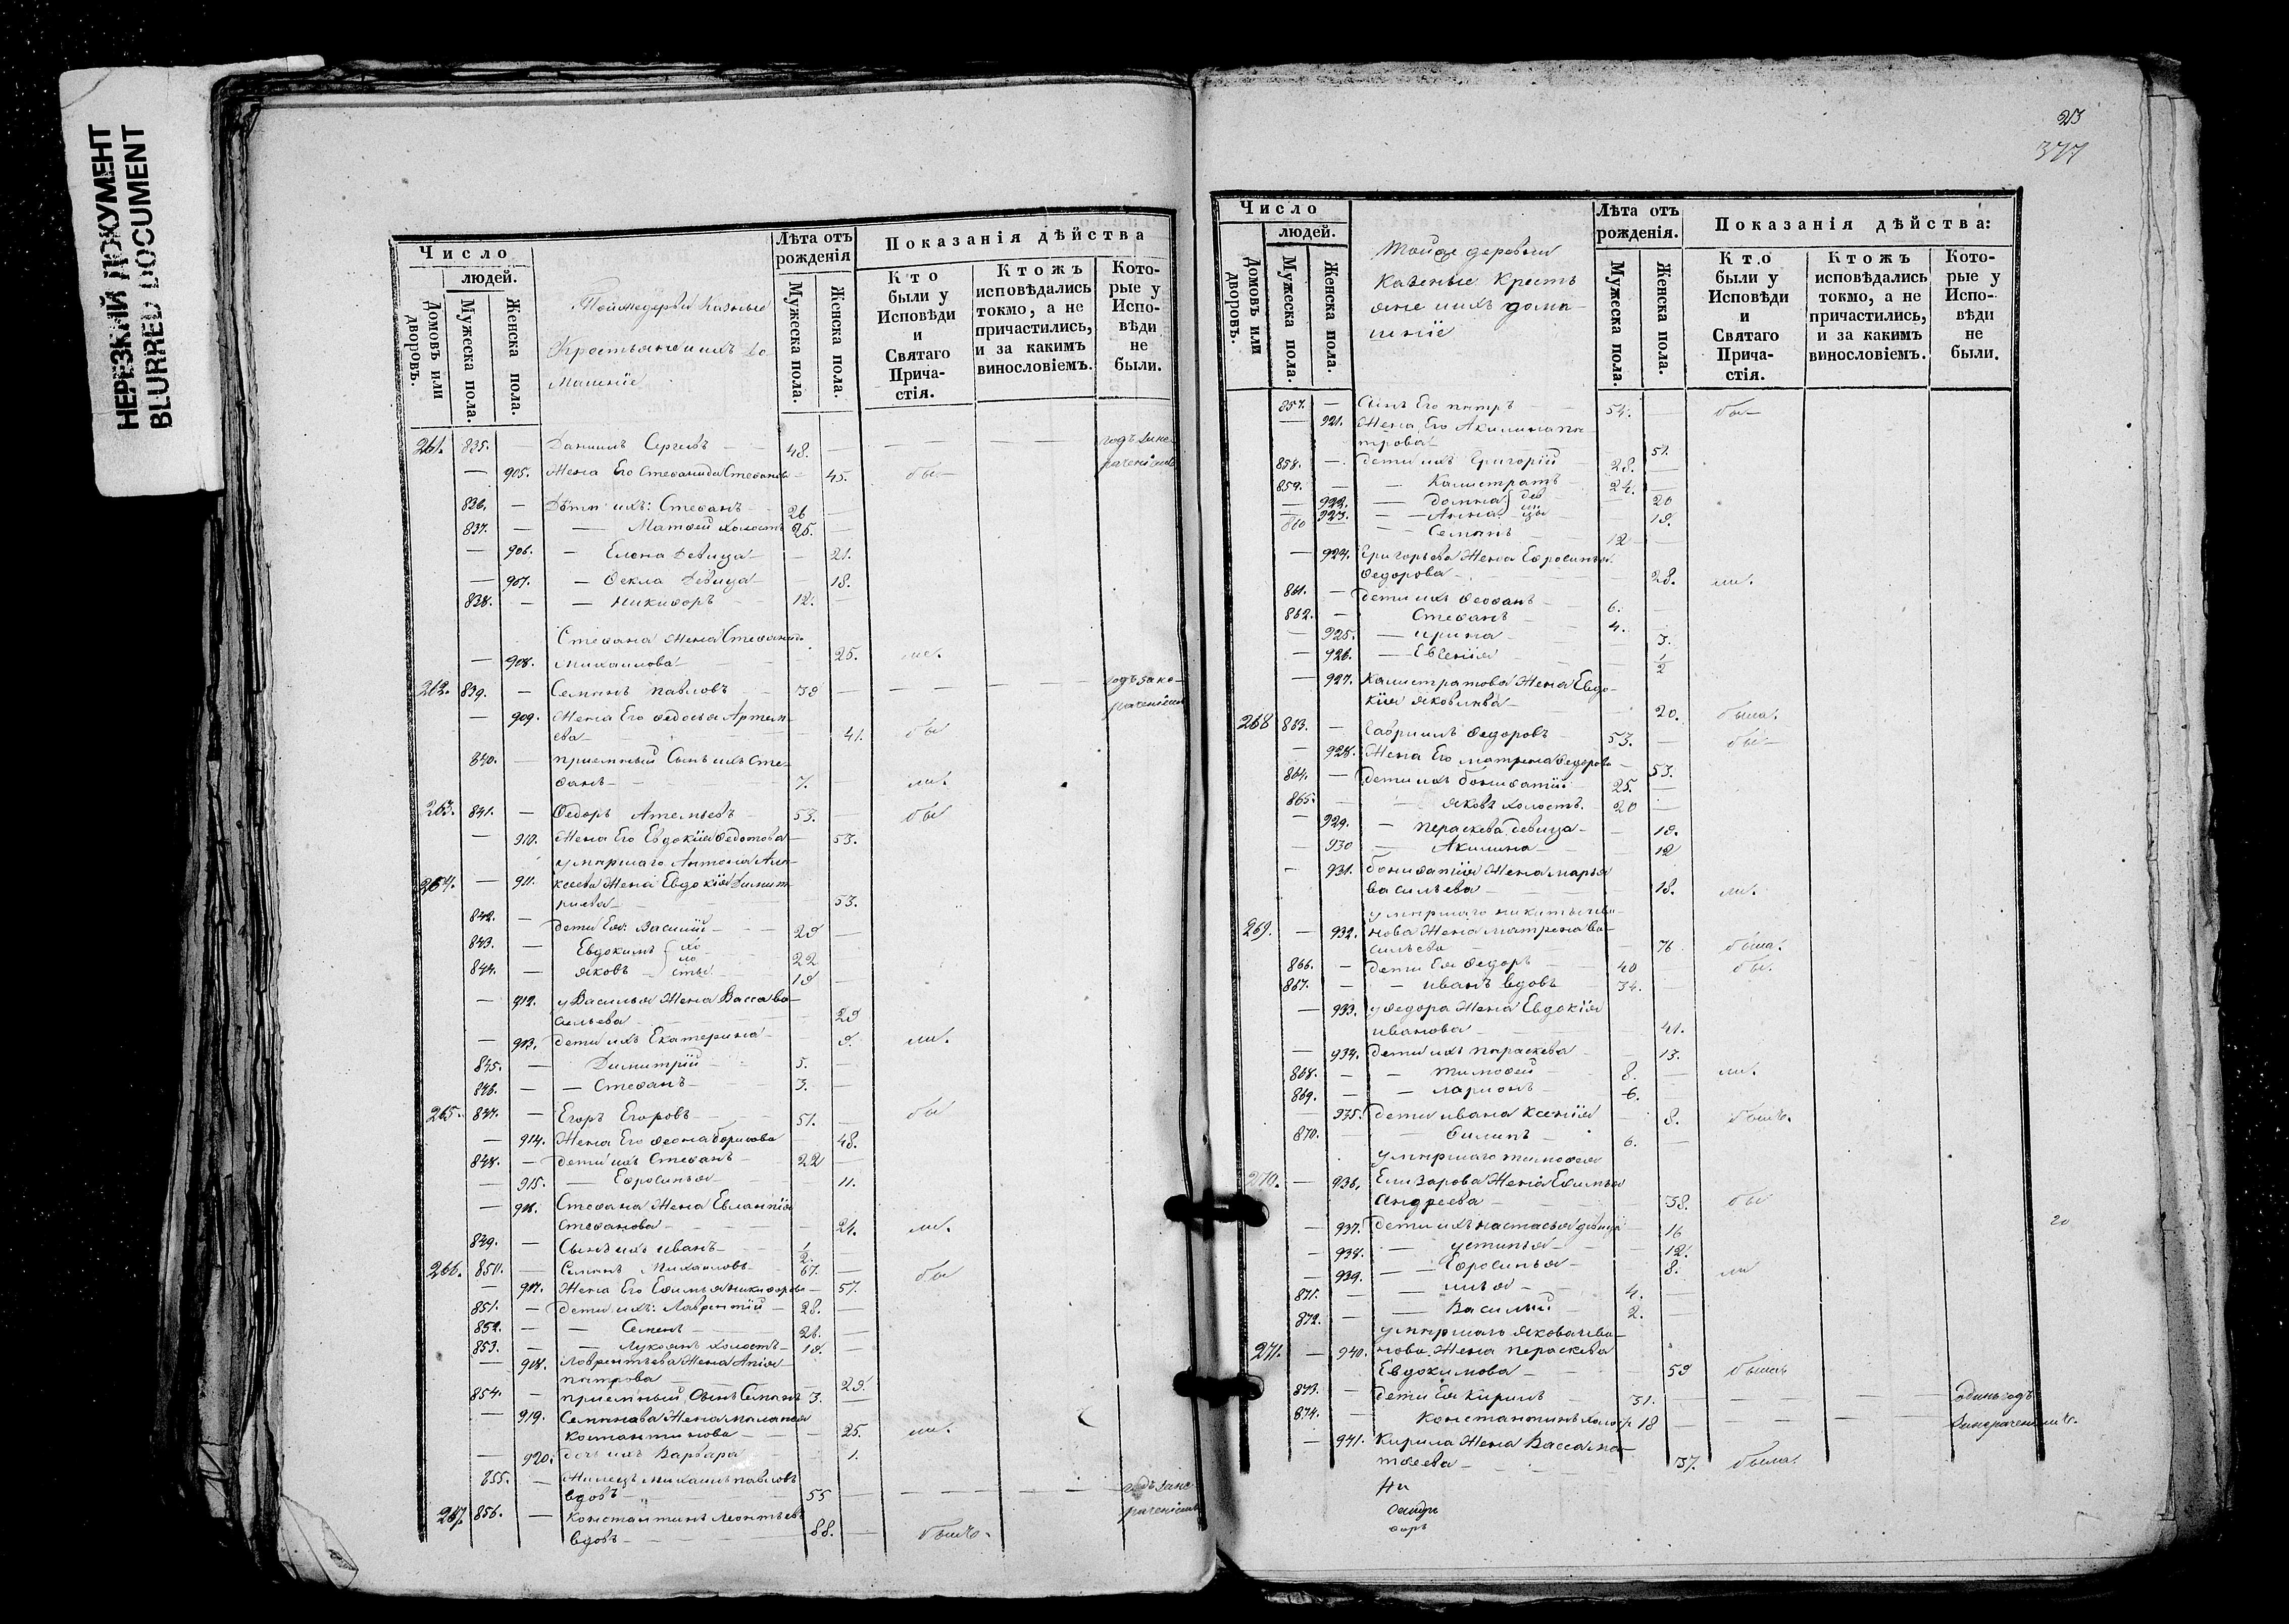 НЕРЕЗКИЙ ДОКУМЕНТ
BLURRED DOCUMENT
Число
людей.
Домовъ или дворовъ.
Мужеска пола.
Женска пола.
Казеные
Крестьяне и ихъ до
машніе
Лѣта отъ рожденія
Мужеска пола.
Женска пола.
Показанія дѣйства
Кто были у Исповѣди и Святаго Прича-стія.
Ктожъ исповѣдались токмо, а не причастились, и за какимъ винословіемъ.
Кото-рые у Испо-вѣди не были.
261. 835. — Даниилъ Сергѣевъ 48.
— 905. Жена Его Стефанида Стефанова 45. бы
836. — Дѣти ихъ: Стефанъ 26
837. — Матфей холостъ 25.
— 906. — Елена девица 21.
— 907. — Фекла девица 18.
838. — — Никифоръ 12.
Стефана Жена Стефанида
— 908. Михаилова 25. ли.
262. 839. — Семенъ Павловъ 39
— 909. Жена Его Федосья Артем-
ева 41. бы
840. — приемный Сынъ ихъ Сте-
фанъ 7. ли.
263. 841. — Федоръ 53. бы
— 910. Жена Его Евдокія Федотова 53.
умершаго Антона Але-
264. — 911. ксеева Жена Евдокія Димит
риева 53.
842. — дети Ея: Василій 29
843. — Евдокимъ хо
ло 22
844. — Яковъ сты 19
— 912. у Василья Жена Васса Ва-
сильева 29
— 913. дети ихъ Екатерина 9. ли.
845. — Димитрій 5.
846. — — Стефанъ 3.
265. 847. — Егоръ Егоровъ 51. бы
— 914. Жена Его Феона Борисова 48.
848. — дети ихъ Стефанъ 22
— 915. — Ефросинья 11.
— 916. Стефана Жена Евлампія
Стефанова 24. ли.
849. — Сынъ ихъ Иванъ 1/2
266. 850. — Семенъ Михаиловъ 67. бы
— 917. Жена Его Ефимья Никифорова 57.
851. — дети ихъ: Лаврентій 28.
852. — — Семенъ 26.
853. — — Лукоянъ холостъ 19.
— 918. Лаврентьева Жена
петрова 29.
854. — приемный Сынъ Семенъ 3.
— 919. Семенова Жена Маланья
Костантинова 25. ли.
— 920. дочь ихъ Варвара 1.
855. — Михаилъ Павловъ
вдовъ 55
267. 856. — Константинъ Леонтьевъ
вдовъ 88. былъ.
23
377
Число
людей.
Домовъ или дворовъ.
Мужеска пола.
Женска пола.
Тойже деревни
Казеные Кресть
яне ихъ дома
шніе
Лѣта отъ рожденія.
Мужеска пола.
Женска пола.
Показанія дѣйства:
Кто были у Исповѣди и Святаго Прича-стія.
Ктожъ исповѣдались токмо, а не причастились, и за какимъ винословіемъ.
Кото-рые у Испо-вѣди не были.
857. — Сынъ Его петръ 54. бы
— 921. Жена Его Акилина пе
трова 51.
858. — дети ихъ Григорій 28.
859. — — Калистратъ 24.
— 922. — домна дев 20
— 923. — Анна цы 19.
860 — Семенъ 12
— 924. Григорьева Жена Ефросинья
Федорова 28. ли.
861. — дети ихъ Феофанъ 6.
862. — Стефанъ 4.
— 925. — ирина 3.
— 926. — Евгенія 1/2
— 927. Калистратова Жена Евдо-
кія Яковлева 20. была.
268 863. — Гавриилъ Федоровъ 53. бы
— 928. Жена Его матрена Федорова 53.
864. — дети ихъ Бонифатій 25.
865. — — Яковъ холостъ. 20
— 929. — пераскева девица 19.
— 930 — Акилина 12
— 931. Бонифатія Жена марья
васильева 18. ли.
умершаго никиты Ива-
269. — 932. нова Жена матрена Ва-
сильева 76 была.
866. — дети Ея Федоръ 40 бы.
867. — — иванъ вдовъ 34.
— 933. у Федора Жена Евдокія
иванова 41.
— 934. дети ихъ параскева 13.
868. — — тимофей 8. ли.
869. — — ларионъ 6.
— 935. дети ивана Ксенія 8. были.
870. — — Филипъ 6.
умершаго тимофея
270. — 936. Елизарова Жена Ефимья
Андреева 38. бы
— 937. дети ихъ настасья девица 16
— 938. — устинья 12.
— 939. — Ефросинья 8. ли
871. — — илья 4.
872. — — Василій 2.
умершаго Якова Ива-
271. — 940. нова Жена пераскева
Евдокимова 59 была
873. — дети Ея Кирилъ 31. Одинъ годъ
874. — Константинъ холос 18
— 941. Кирила Жена Васса ма-
тфеева 37. была.
20